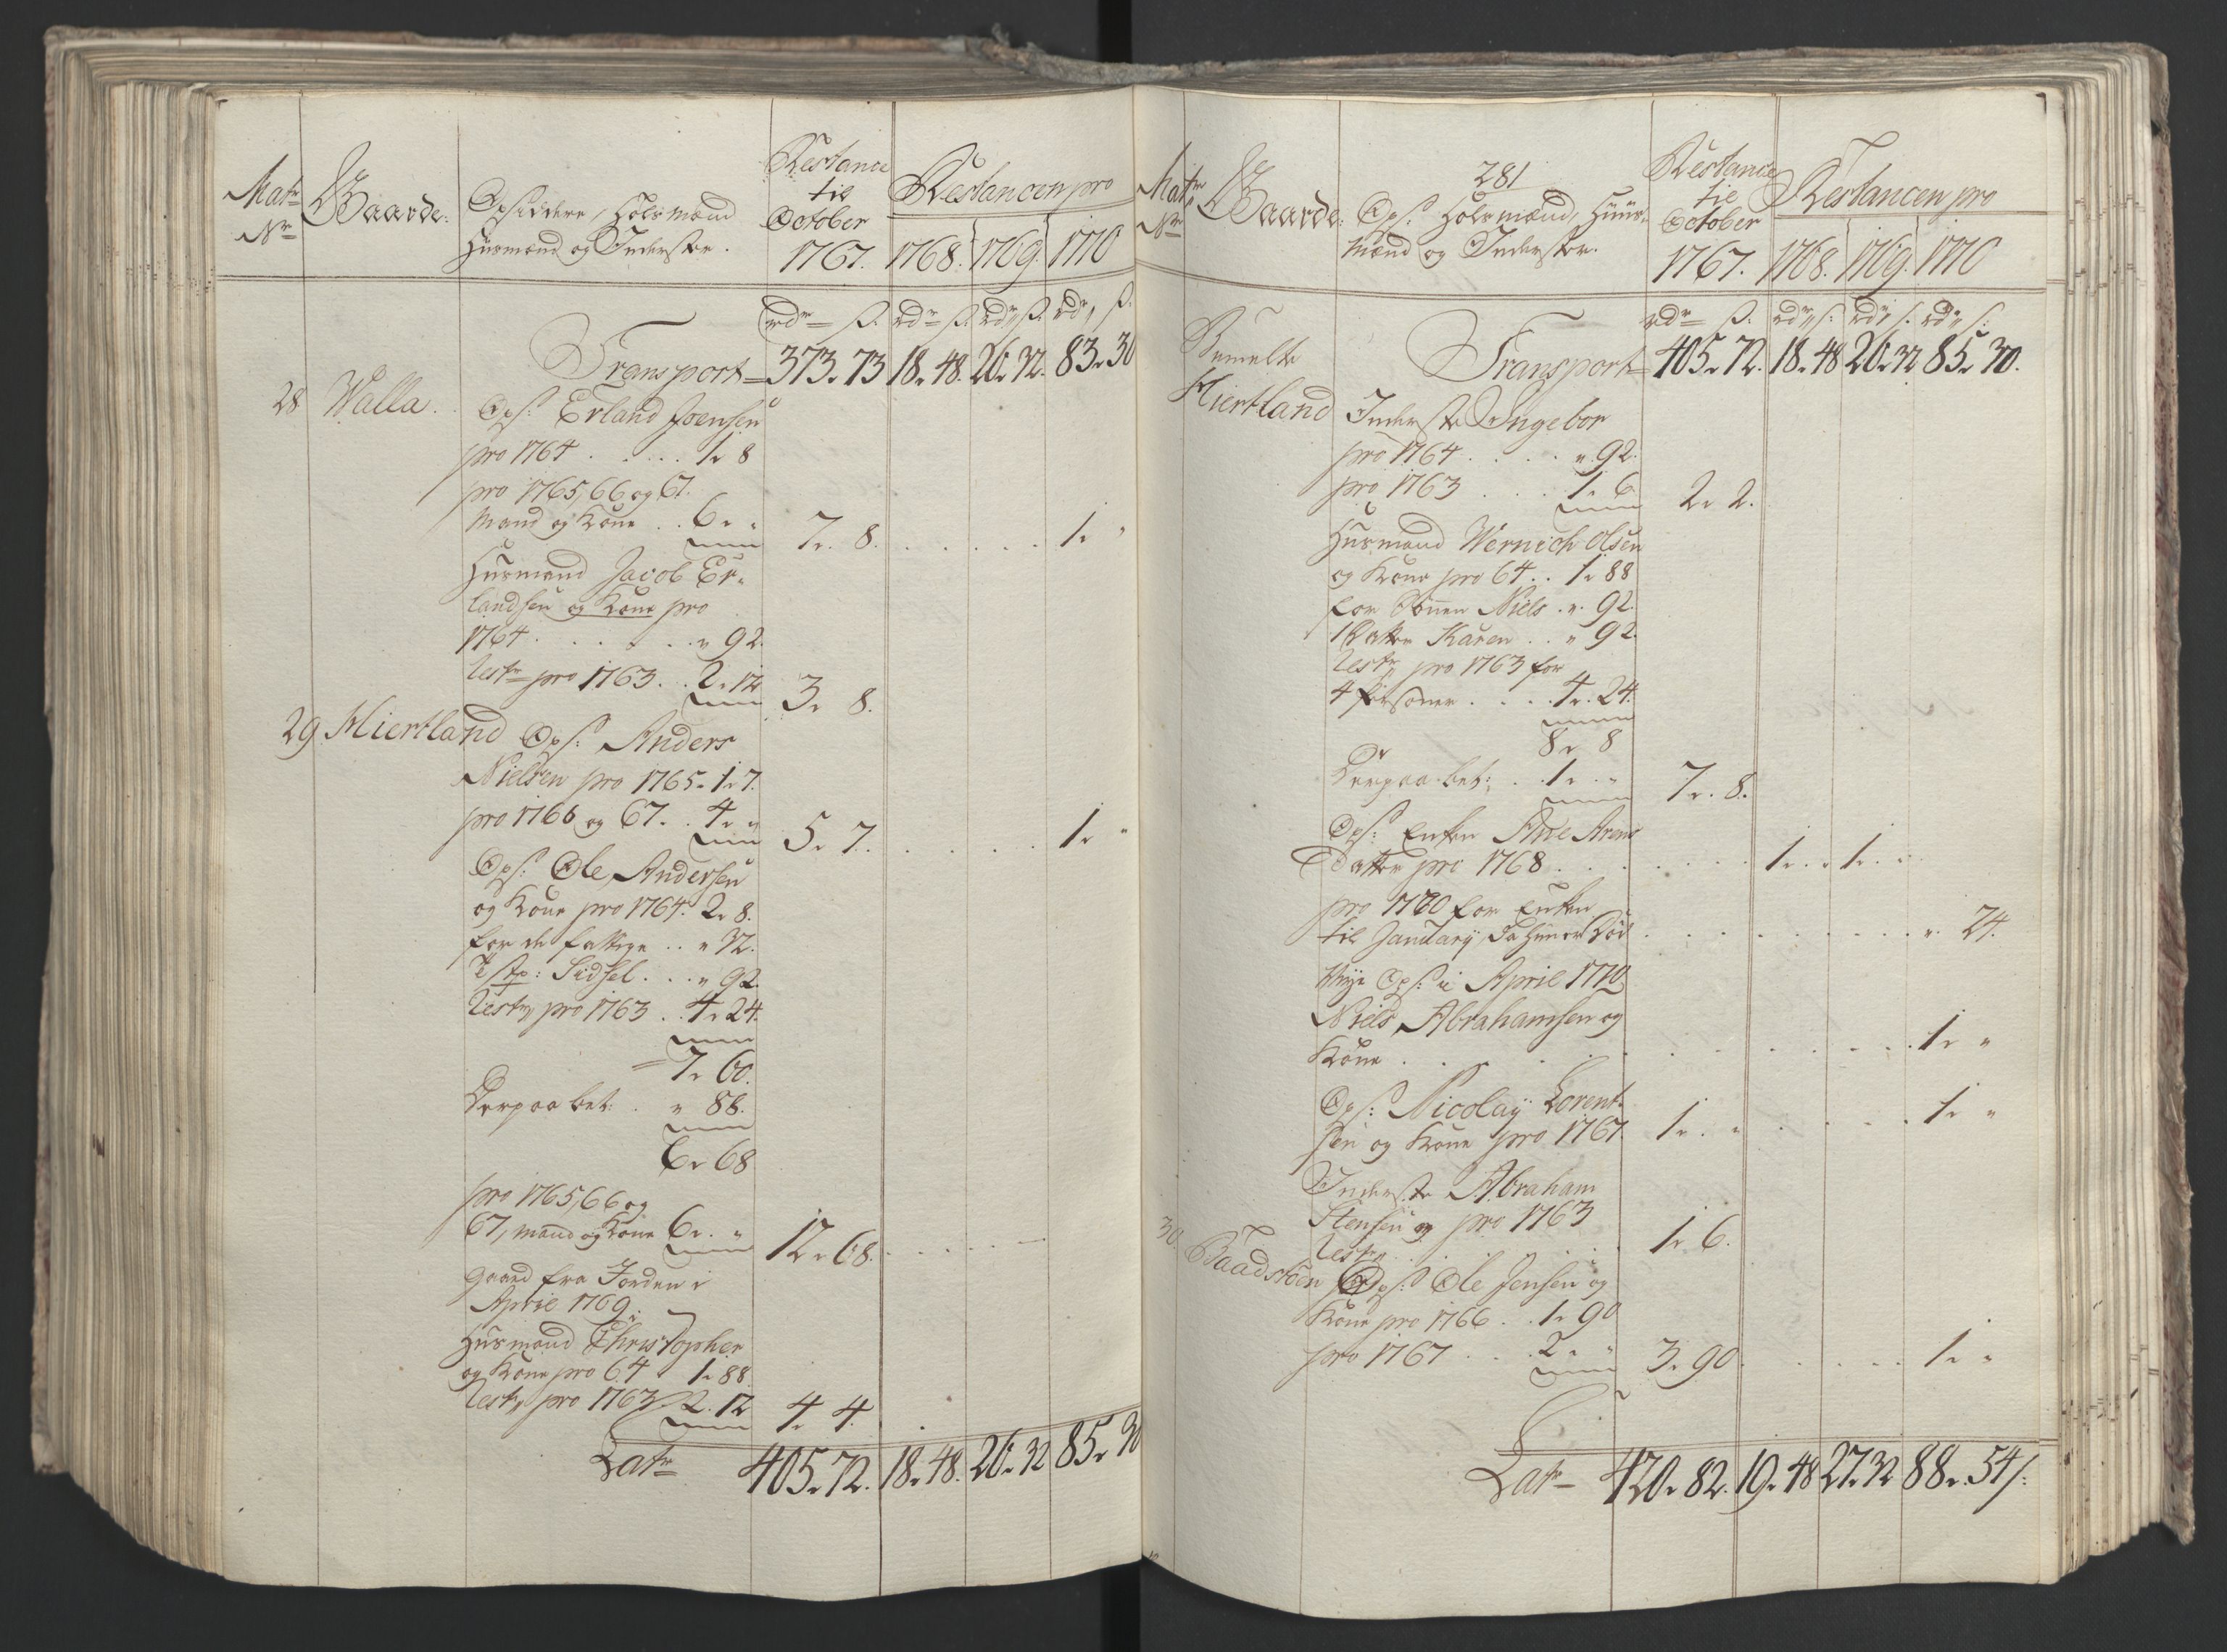 Matr Nr
Gaarde:
Opsiddere, Holsmænd
Husmænd og Inderster.
Restance
til
October
1767.
Restancen pro
1768. 1769. 1770
rdr ß. rdr ß. rdr ß. rdr ß.
Transport 373. 73 18. 48. 26. 32. 83. 30
28 Walla. Ops: Erland Joensen
pro 1764 . . . . . 1. 8
pro 1765, 66 og 67.
Mand og Kone . . 6. „ 7. 8. . . . . . 1. „
Husmand Jacob Er-
landsen og Kone pro
1764 . . . . . . „ 92.
Restr pro 1763 . . 2. 12 3. 8.
29 Hiertland Ops: Anders
Nielsen pro 1765. 1. 7.
pro 1766 og 67. . 4. „ 5. 7. . . . . . 1. „
Ops: Ole Andersen
og Kone pro 1764. 2. 8.
for de fattige . . „ 32.
Sidsel . . . „ 92.
Restr pro 1763 . . 4. 24.
7. 60.
Derpaa bet: . „ 88.
6. 68
pro 1765, 66 og
67, mand og Kone 6. „ 12. 68. . . . . .
gaard fra Jorden i
April 1769.
Husmand Christopher
og Kone pro 64 1. 88.
Restr pro 1763 2. 12 4. 4.
Latr 405. 72. 18. 48. 26. 32 85. 30
281
Matr Nr
Gaarde:
Ops: Holsmænd, Huus-
mænd og Inderster.
Restance
til
October
1767.
Restancen pro
1768. 1769. 1770
rdr ß. rdr ß. rdr ß. rdr ß.
Bemelte Transport 405. 72. 18. 48 26. 32 85. 30.
Hiertland Inderste Ingebor
pro 1764 . . . . „ 92.
pro 1763 . . . 1. 6 2. 2.
Husmand Wernich Olsen
og Kone pro 64 . . 1. 88
for Sønnen Niels . „ 92.
1 Datter Karen . . „ 92.
Restr pro 1763 for
4 Personer . . . . 4. 24.
8. 8
Derpaa bet: . . 1. „ 7. 8.
Ops: Enken Ane Arens
Datter pro 1768 . . . . . . . . 1. „ 1. „
pro 1770 for Enken
til January, da hun er Død . . . . . . . . . „ 24.
Nye Ops: i April 1770
Niels Abrahamsen og
Kone . . . . . . . . . . . . 1. „
Ops: Nicolay Lorent-
sen og Kone pro 1767 1. „ . . . . . 1. „
Inderste Abraham
Stensen og pro 1763
Restr . . . . . . 1. 6.
30 Baadstøen Ops: Ole Jensen og
Kone pro 1766 . . 1. 90
pro 1767 . . . 2. „ 3. 90. . . . . . 1. „
Latr 420. 82. 19. 48 27. 32 88. 54